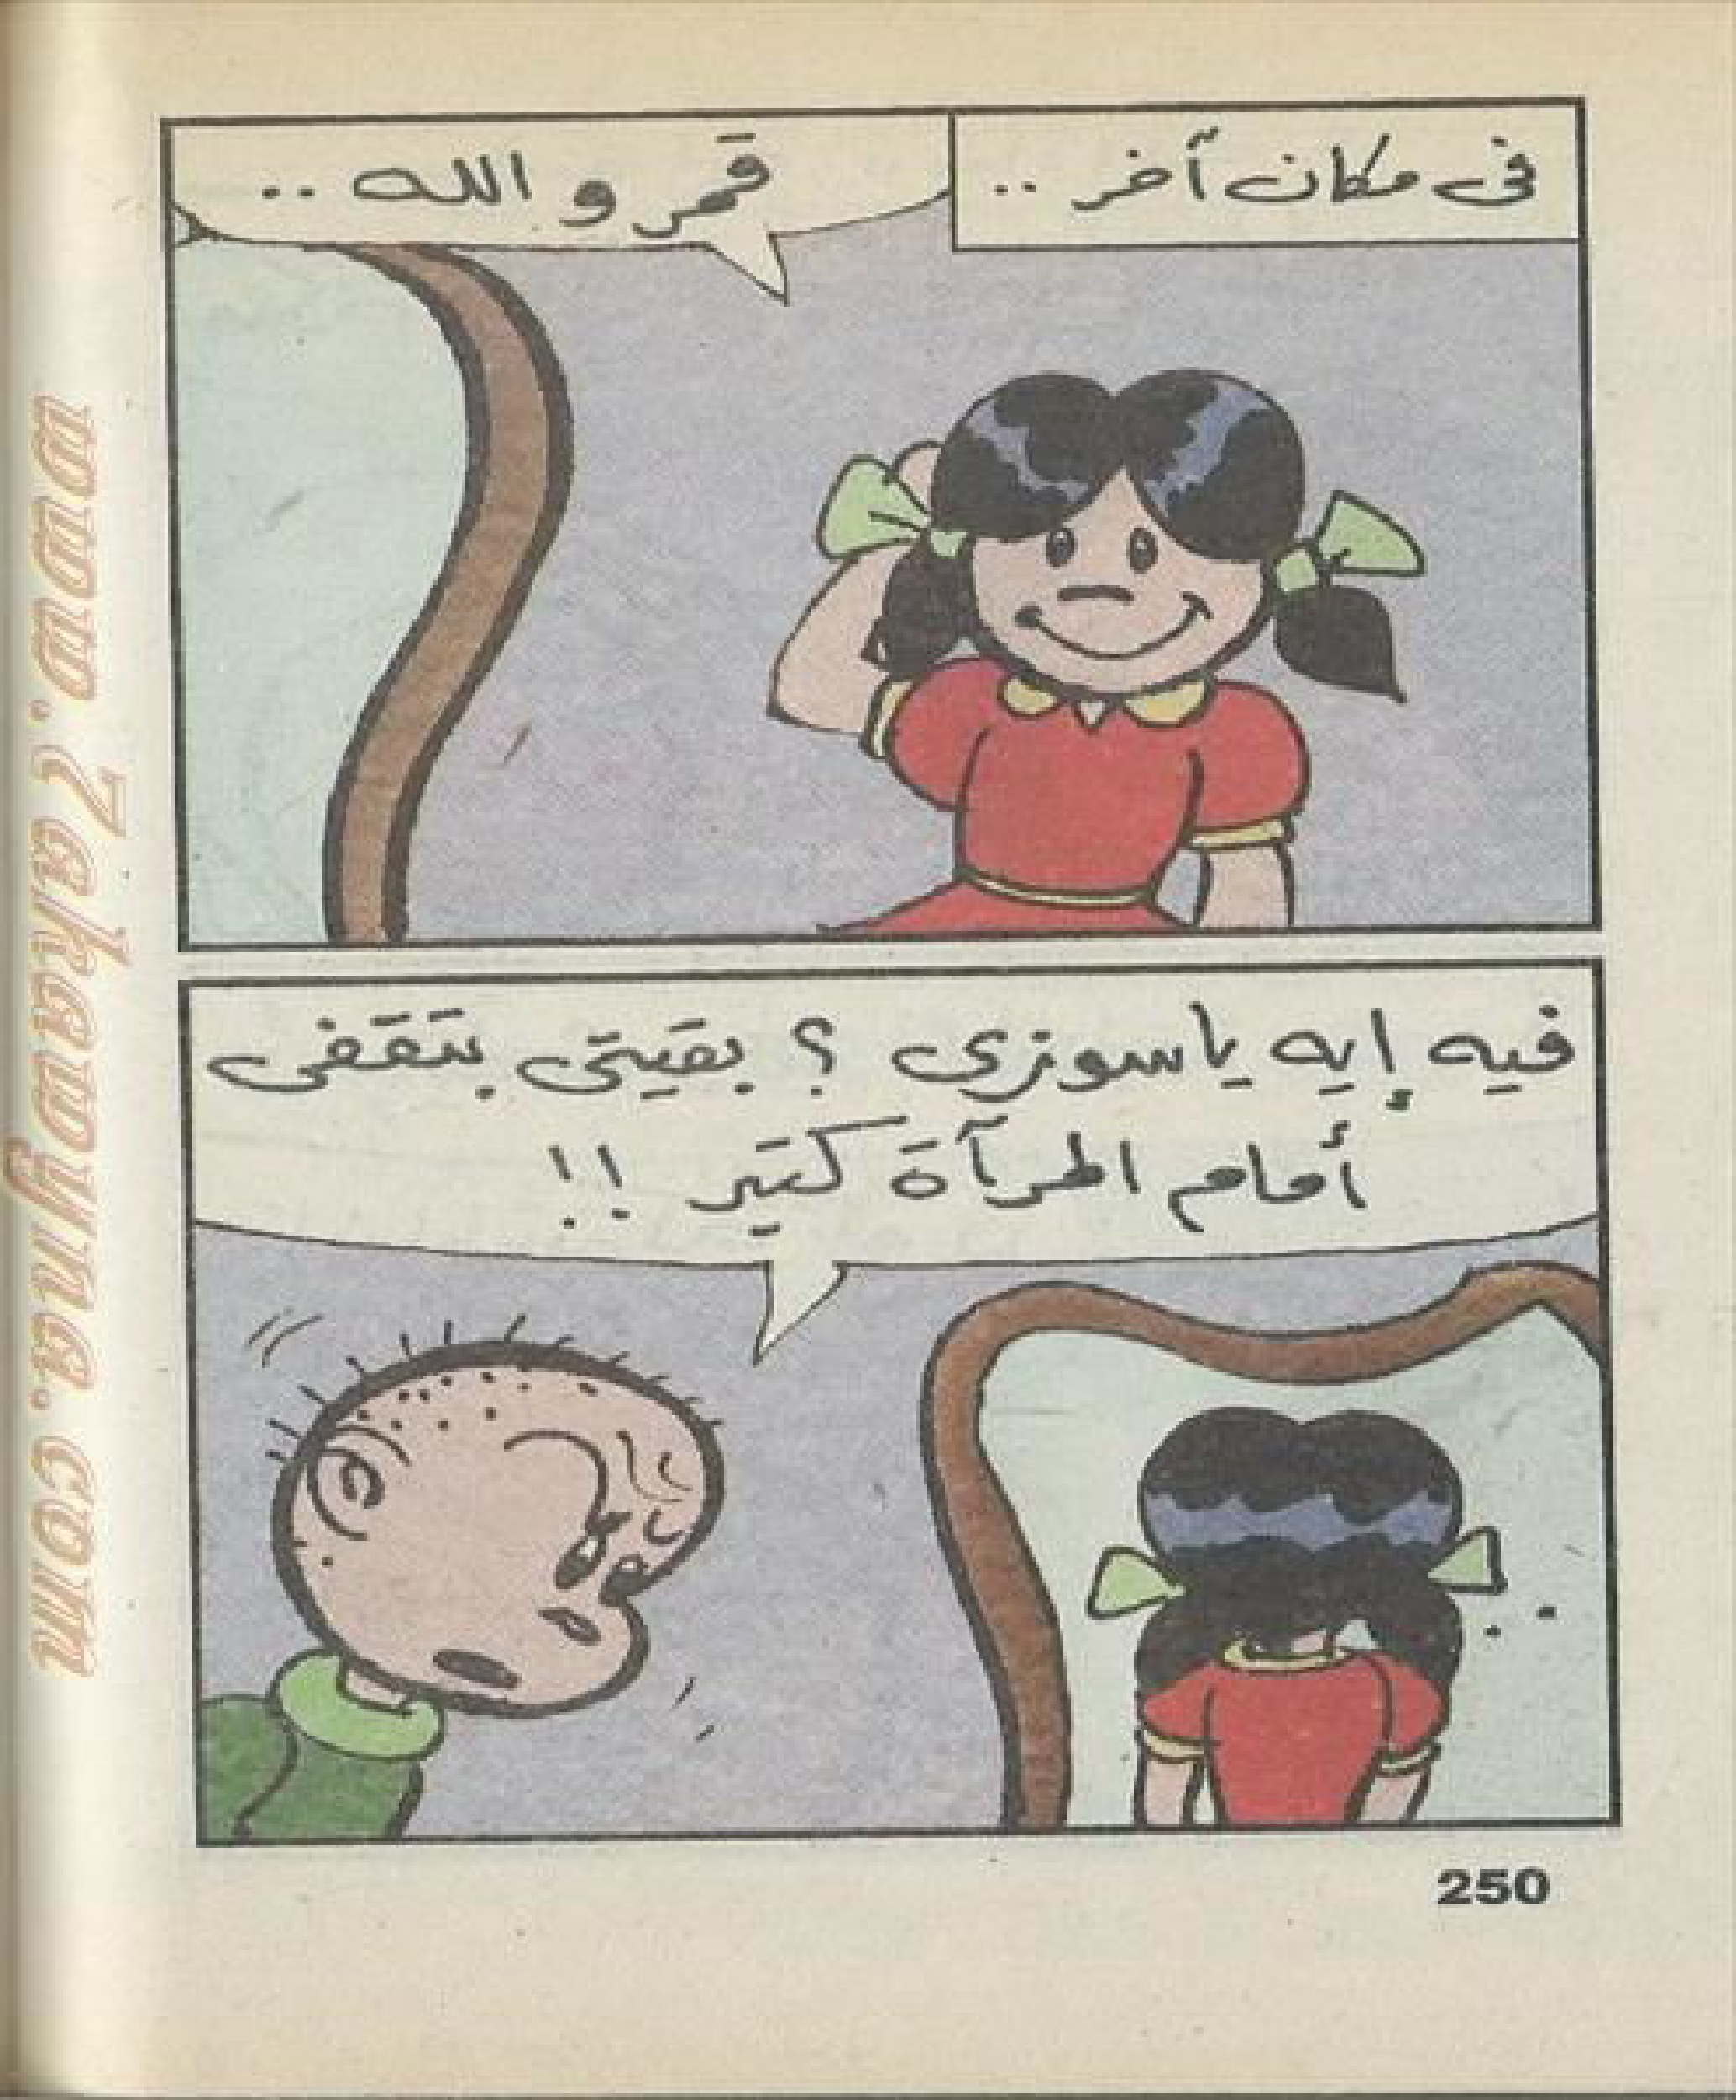 فى مكان آخر ..
قمر و الله ..
فيه إيه ياسوزى ؟ بقيتى بتقفى
أمام المرآة كتير !!
250
www.7akawyna.com